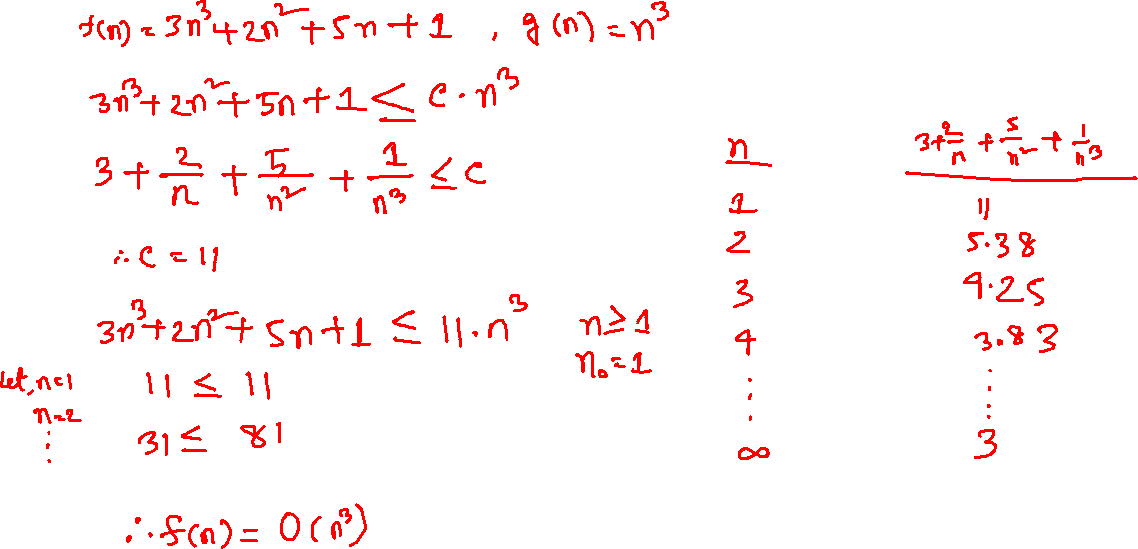 f(n) = 3n³ + 2n² + 5n + 1 , g(n) = n³
3n³ + 2n² + 5n + 1 ≤ c · n³
3 + 2/n + 5/n² + 1/n³ ≤ c
∴ c = 11
3n³ + 2n² + 5n + 1 ≤ 11 . n³ n ≥ 1
n₀ = 1
Let, n=1 11 ≤ 11
n=2 31 ≤ 81
⋮
∴ f(n) = O(n³)
n 3 + 2/n + 5/n² + 1/n³
1 11
2 5.38
3 4.25
4 3.83
⋮ ⋮
∞ 3